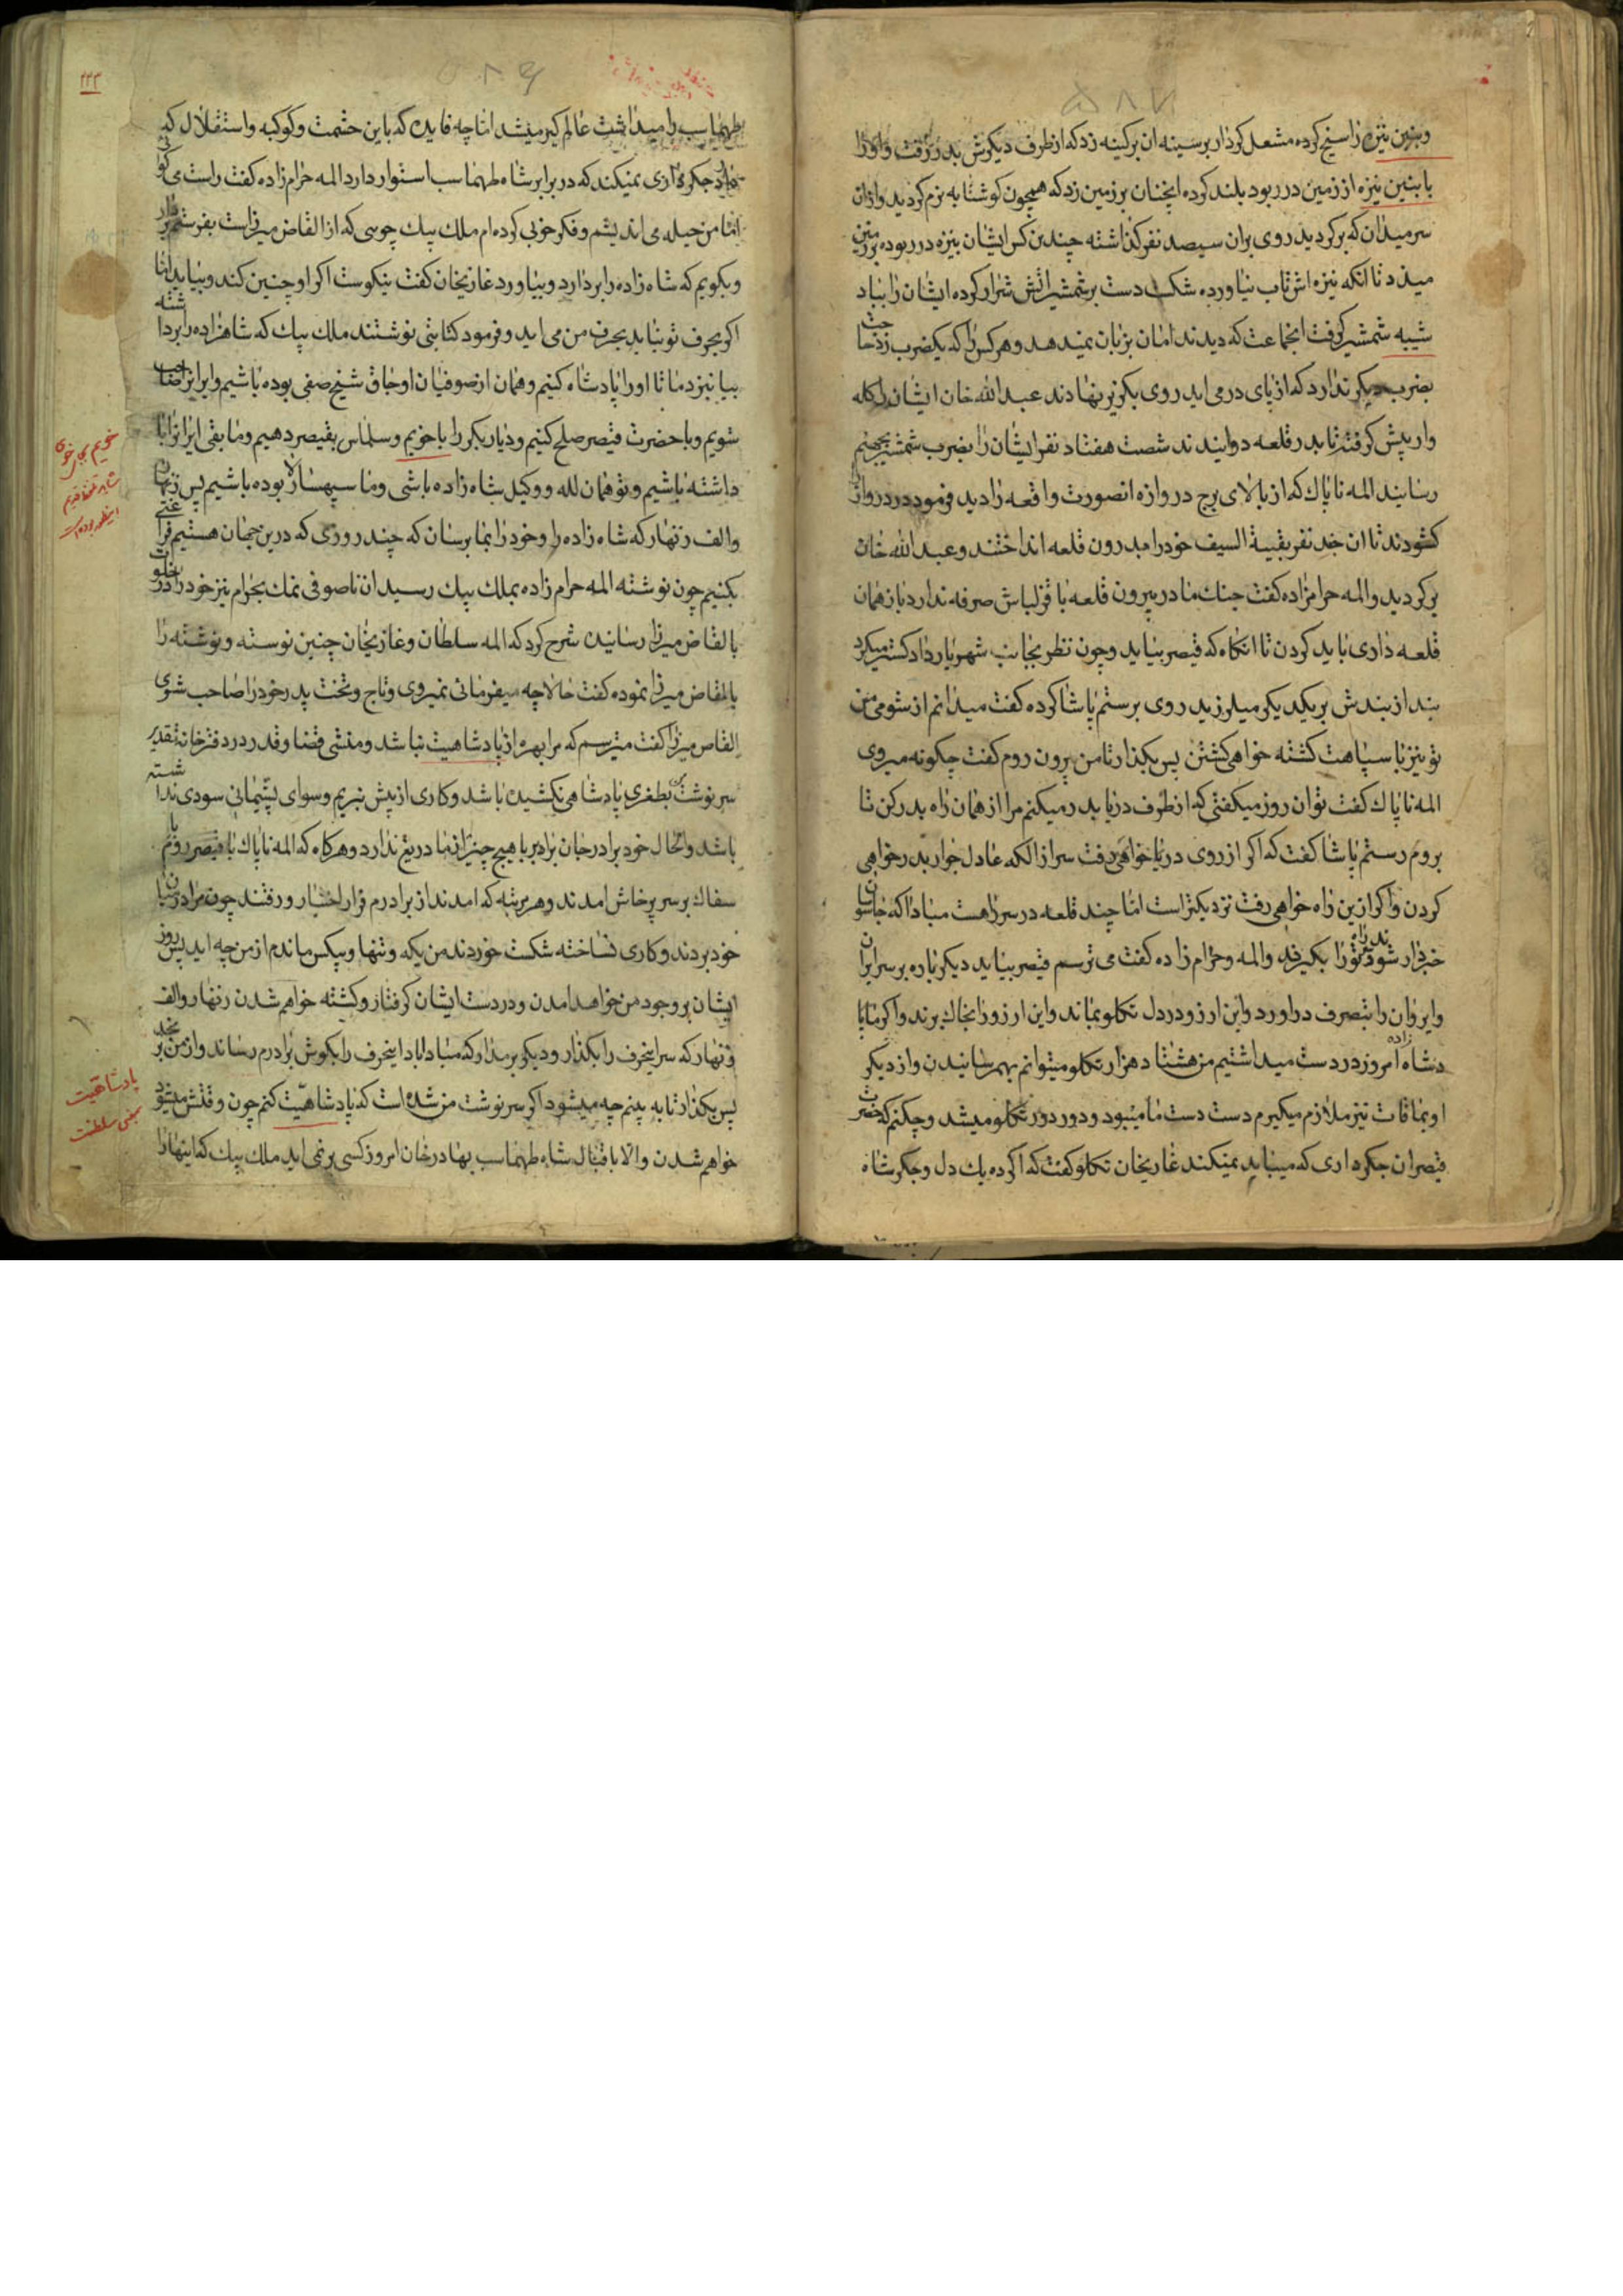 وبنبن نیزه را سیخ کرده مشعل کردار بر سینه ان پرکینه زد که از طرف دیکرش بدر رفت واورا
با بنبن نیزه از زمین در ربود بلند کرده انچنان بر زمین زد که همچون کوشتابه نرم کردید وازان
سر میدان که برکردید روی بران سیصد نفر کذاشته چندین کس ایشان بنیزه در ربوده بر زمین
میزد تا انکه نیزه اش تاب نیاورده شکست دست بر شمشیر اتش شرار کرده ایشان را بباد
شیبه شمشیر کرفت انجماعت که دیدند امان بزبان نمیدهد وهر کس را که یکضرب زد حاجت
بضرب دیکر ندارد که از پای در می اید روی بکریز نهادند عبدالله خان ایشان را کله
وار پیش کرفته تا بدر قلعه دوانیدند شصت هفتاد نفر ایشان را بضرب شمشیر بجهنم
رسانیند المه ناپاک که از بالای برج دروازه انصورت واقعه را دید فرمود در دروازه
کشودند تا ان چند نفر بقیة السیف خود را بدرون قلعه انداختند وعبدالله خان
برکردید والمه حرامزاده کفت جنک ما در بیرون قلعه با قزلباش صرفه ندارد باز همان
قلعه داری باید کردن تا انکاه که قیصر بیاید وچون نظر بجانب شهریار دادکستر میکرد
بند از بندش بر یکدیکر میلرزید روی برستم پاشا کرده کفت میدانم از شومی من
تو نیز با سپاهت کشته خواهی کشتن پس بکذار تا من برون روم کفت چکونه میروی
المه ناپاک کفت توان روز میکفتی که از طرف دریا بدر میکنم مرا از همان راه بدر کن تا
بروم رستم پاشا کفت که اکر از روی دریا خواهی رفت سر از الکه عادل جواز بدر خواهی
کردن واکر ازین راه خواهی رفت نزدیکتر است اما چند قلعه در سر راهست مبادا که جاسوسان
خبردار شوند وتورا بکیرند والمه حرام زاده کفت می ترسم قیصر بیاید دیکر باره بر سر ایران
وایروان را بتصرف دراورد واین ارزو در دل تکلو بماند واین ارزو را بخاک برند واکر ما پا
دشاه زاده امروز در دست میداشتیم من هشتاد هزار تکلو میتوانم بهم رسانیدن واز دیکر
اویماقات نیز ملازم میکیرم دست دست ما میبود ودور دور تکلو میشد وچکنم که حضرت
قیصر ان جکرداری که میباید نمیکند غازیخان تکلو کفت که اکر ده یک دل وجکر شاه
۲۲۳
طهماسب را میداشت عالم کیر میشد اما چه فایده که باین حشمت وکوکبه واستقلال که
دارد جکرداری نمیکند که در برابر شاه طهماسب استوار دارد المه حرام زاده کفت راست می کوئی
اما من حیله می اندیشم وفکر خوبی کرده ام ملک بیک چوسی که از القاص میرزاست بفرستم
وبکویم که شاه زاده را بردارد وبیاورد غازیخان کفت نیکوست اکر او چنین کند وبیاید اما
اکر بحرف تو نیاید بحرف من می اید وفرمود کتابتی نوشتند ملک بیک که شاهزاده را برداشته
بیا نیز دما تا اورا پادشاه کنیم وهمان از صوفیان اوجاق شیخ صفی بوده باشیم وایران را صاحب
شویم وبا حضرت قیصر صلح کنیم ودیار بکر را با خویم وسلماس بقیصر دهیم وما بقی ایران را با
داشته باشیم وتو همان لله ووکیل شاه زاده باشی وما سپهسالار بوده باشیم پس زنهار
والف زنهار که شاه زاده را وخود را بما برسان که چند روزی که درین جهان هستیم فراغتی
بکنیم چون نوشته المه حرام زاده بملک بیک رسید ان ناصوفی نمک بحرام نیز خود را در خلوت
بالقاص میرزا رسانیده شرح کرد که المه سلطان وغازیخان چنین نوسته ونوشته را
بالقاص میرزا نموده کفت حالا چه میفرمائی نمیروی وتاج وتخت پدر خود را صاحب شوی
القاص میرزا کفت میترسم که مرا بهره از پادشاهیت نباشد ومنشی قضا وقدر در دفترخانه تقدیر
سرنوشت بطغری پادشاهی نکشیده باشد وکاری از پیش نبریم وسوای پشیمانی سودی نداشته
باشد والحال خود برادر جان برابر با هیچ چیز از ما دریغ ندارد وهر کاه که المه ناپاک با قیصر روم
سفاک بر سر پرخاش امدند وهر مرتبه که امدند از برادرم فرار اختیار ورفتند چون مرا در میان
خود بردند وکاری نساخته شکست خوردند من یکه وتنها وبیکس ماندم از من چه اید پس روز
ایشان بر وجود من خواهد امدن ودر دست ایشان کرفتار وکشته خواهم شدن زنهار والف
زنهار که سر اینحرف را بکذار ودیکر برمدار که مبادا باد اینحرف را بکوش برادرم رساند واز من برنجد
پس بکذار تا به بینم چه میشود اکر سرنوشت من شده است که پادشاهیت کنم چون وقتش میشود
خواهم شدن والا با اقبال شاه طهماسب بهادر خان امروز کسی بر نمی اید ملک بیک کتابتها را
پادشاهیت
بمعنی سلطنت